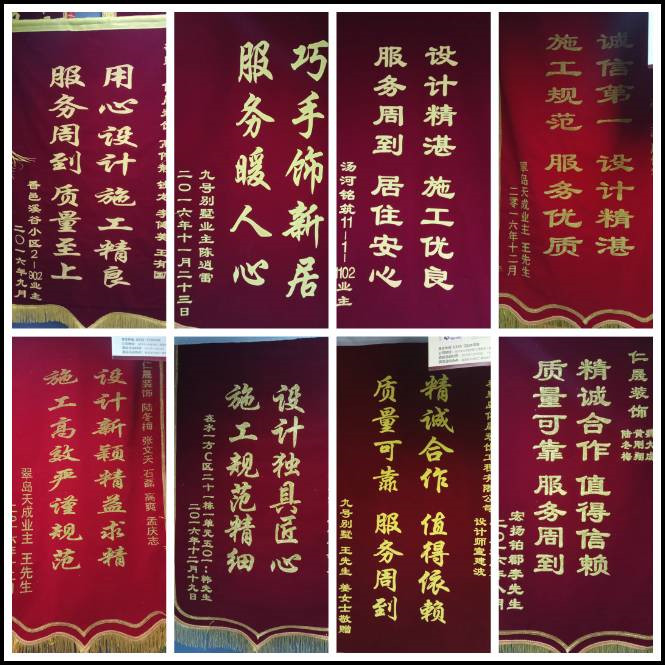 用心设计 施工精良
服务周到 质量至上
香邑溪谷小区2-902业主
二〇一六年九月
巧手饰新居
服务暖人心
九号别墅业主陈逍雷
二〇一六年十一月二十三日
设计精湛 施工优良
服务周到 居住安心
汤河铭筑11-1-1102业主
诚信第一 设计精湛
施工规范 服务优质
翠岛天成业主 王先生
二零一六年十二月
仁晟装饰 陆冬梅 张文天 石磊 高爽 孟庆志
设计新颖精益求精
施工高效严谨规范
翠岛天成业主 王先生
设计独具匠心
施工规范精细
在水一方C区二十一栋一单元五〇一:韩先生
二〇一六年十二月十九日
设计师宣建波
精诚合作 值得依赖
质量可靠 服务周到
九号别墅 王先生 姜女士敬赠
仁晟装饰
黄刚翔
陆冬梅
精诚合作 值得信赖
质量可靠 服务周到
宏扬铂郡李先生
二〇一六年八月